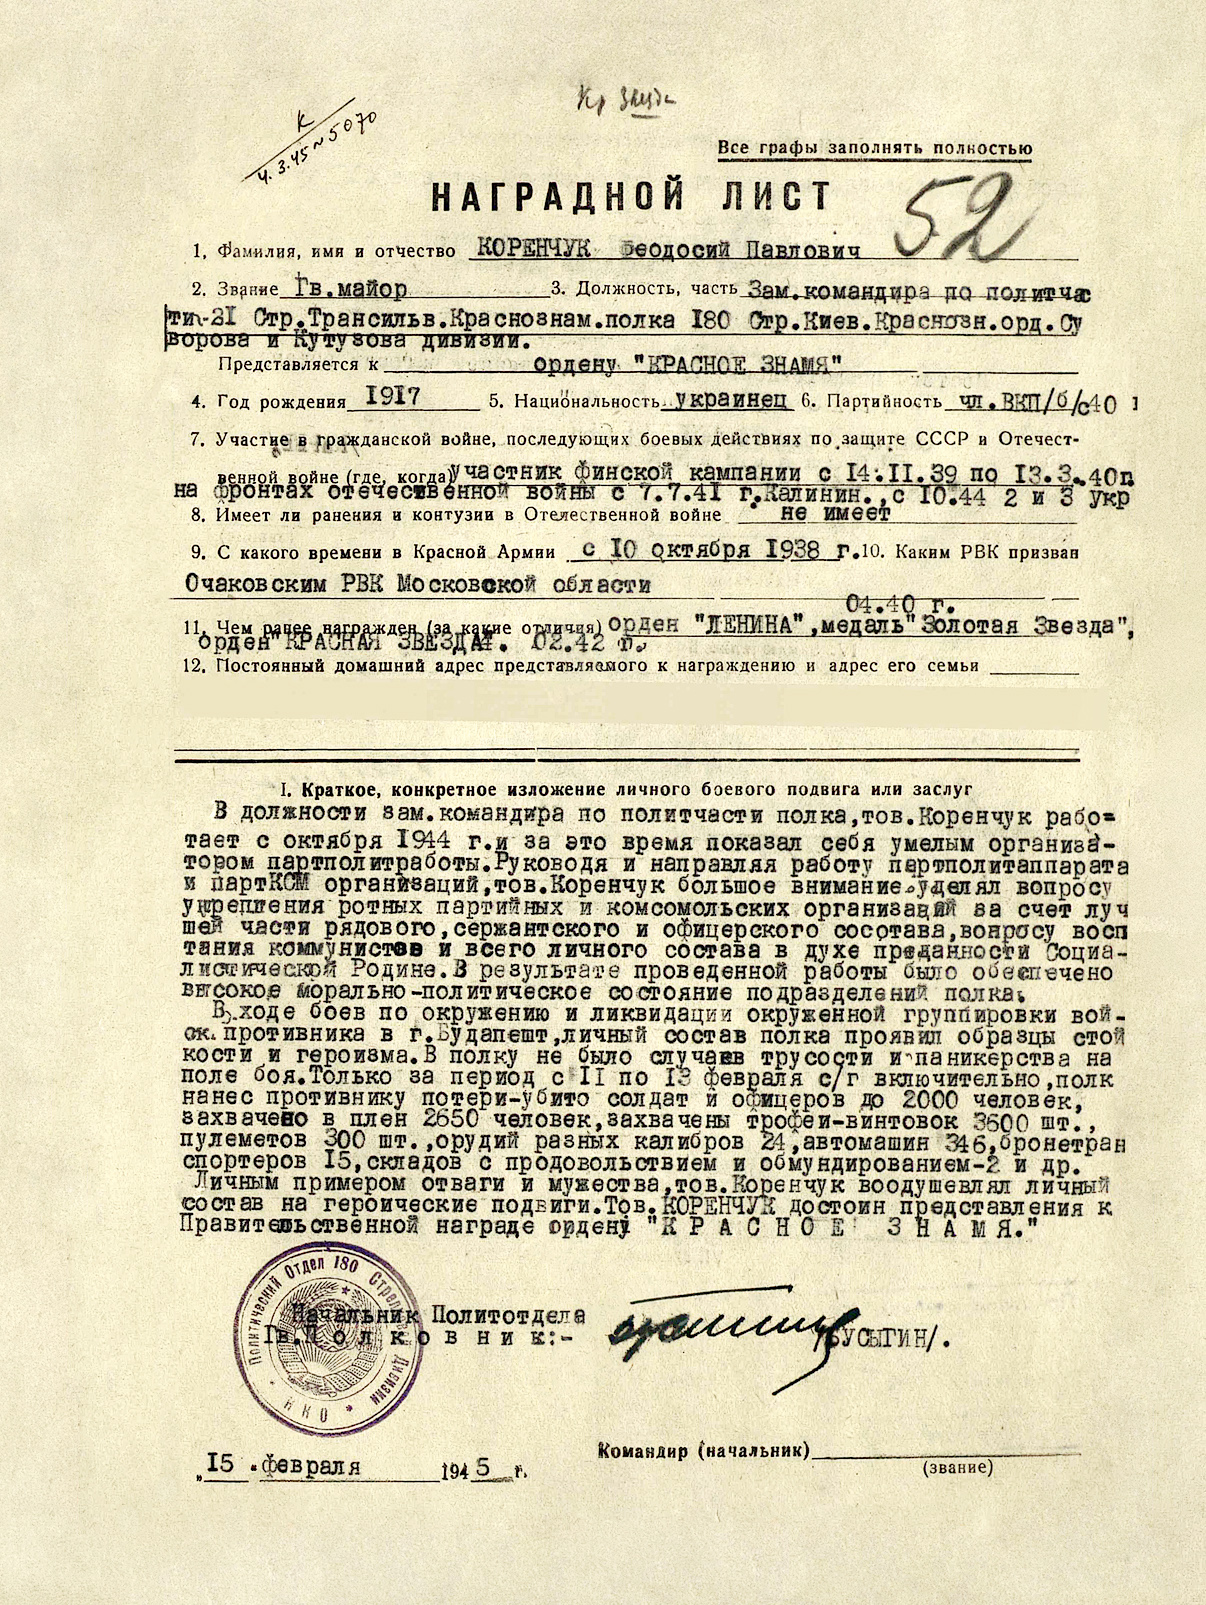 Кр Звезда
К
4.3.45 № 5070
Все графы заполнять полностью
НАГРАДНОЙ ЛИСТ
52
1. Фамилия, имя и отчество КОРЕНЧУК Феодосий Павлович
2. Звание Гв.майор 3. Должность, часть Зам.командира по политчас
ти-21 Стр.Трансильв.Краснознам.полка 180 Стр.Киев.Краснозн.орд.Су
ворова и Кутузова дивизии.
Представляется к ордену "КРАСНОЕ ЗНАМЯ"
4. Год рождения 1917 5. Национальность украинец 6. Партийность чл.ВКП/б/с40
7. Участие в гражданской войне, последующих боевых действиях по защите СССР и Отечест-
венной войне (где, когда) участник финской кампании с 14.II.39 по 13.3.40г
на фронтах отечественной войны с 7.7.41 г.Калинин., с 10.44 2 и 3 укр
8. Имеет ли ранения и контузии в Отечественной войне не имеет
9. С какого времени в Красной Армии с 10 октября 1938 г. 10. Каким РВК призван
Очаковским РВК Московской области
04.40 г.
11. Чем ранее награжден (за какие отличия) орден "ЛЕНИНА",медаль"Золотая Звезда",
орден"КРАСНАЯ ЗВЕЗДА". 02.42 г.
12. Постоянный домашний адрес представляемого к награждению и адрес его семьи
I. Краткое, конкретное изложение личного боевого подвига или заслуг
В должности зам.командира по политчасти полка,тов.Коренчук рабо-
тает с октября 1944 г.и за это время показал себя умелым организа-
тором партполитработы.Руководя и направляя работу партполитаппарата
и партКСМ организаций,тов.Коренчук большое внимание уделял вопросу
укрепления ротных партийных и комсомольских организаций за счет луч
шей части рядового,сержантского и офицерского сосртава,вопросу восп
тания коммунистов и всего личного состава в духе преданности Социа-
листической Родине.В результате проведенной работы было обеспечено
высокое морально-политическое состояние подразделений полка.
В ходе боев по окружению и ликвидации окруженной группировки вой-
ск противника в г.Будапешт,личный состав полка проявил образцы стой
кости и героизма.В полку не было случаев трусости и паникерства на
поле боя.Только за период с II по 13 февраля с/г включительно,полк
нанес противнику потери-убито солдат и офицеров до 2000 человек,
захвачено в плен 2650 человек,захвачены трофеи-винтовок 3600 шт.,
пулеметов 300 шт.,орудий разных калибров 24,автомашин 346,бронетран
спортеров 15,складов с продовольствием и обмундированием-2 и др.
Личным примером отваги и мужества,тов.Коренчук воодушевлял личный
состав на героические подвиги.Тов.КОРЕНЧУК достоин представления к
Правительственной награде ордену "К Р А С Н О Е З Н А М Я."
Политический Отдел 180 Стрелковой Дивизии
НКО
Начальник Политотдела
Гв.П о л к о в н и к:- /БУСЫГИН/.
Командир (начальник)
(звание)
„15 " февраля 1945 г.